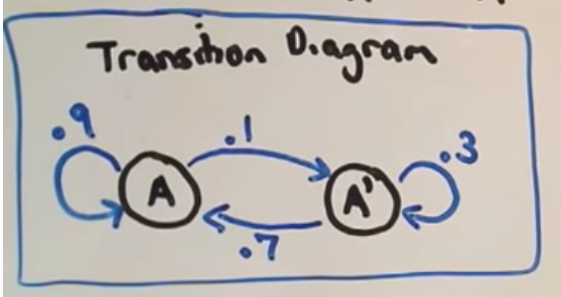 Transition Diagram
.9
.1
.3
A
A'
.7